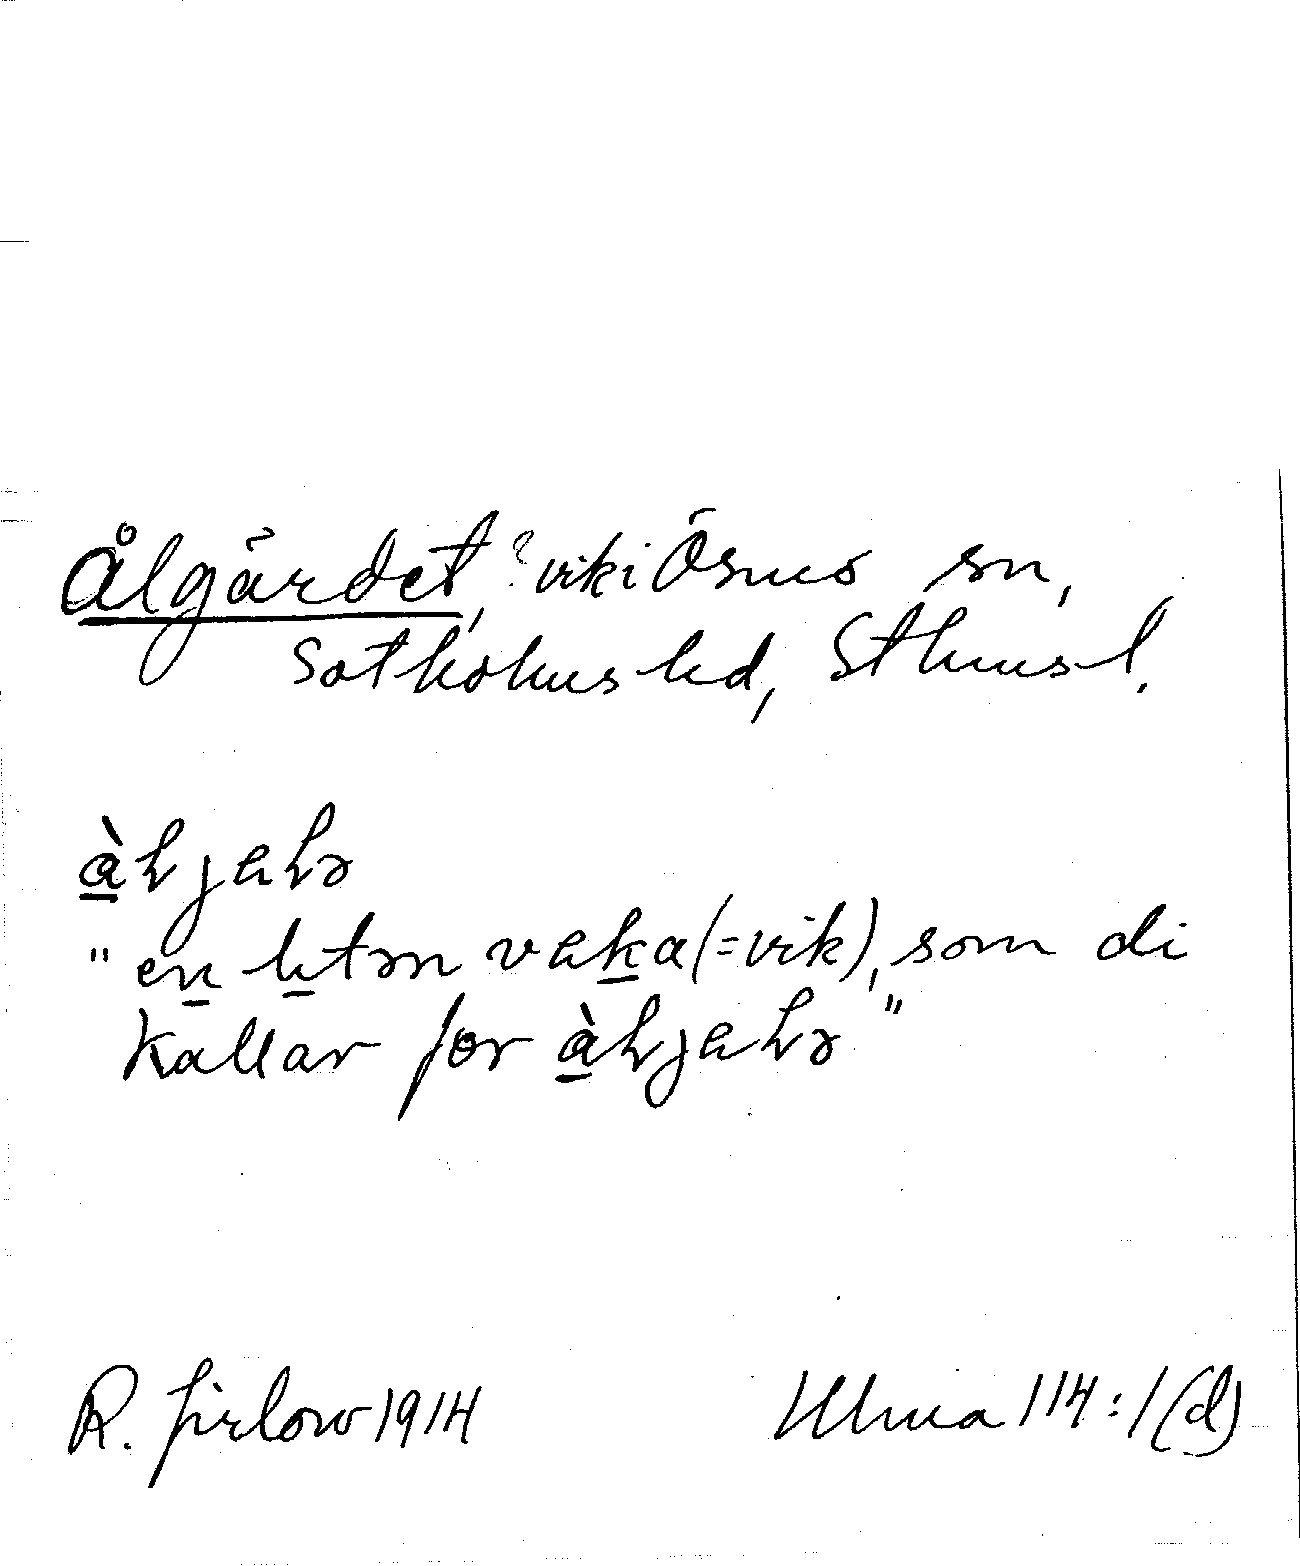 Ålgärdet, ? vik i Ösmo sn,
Sotholms hd, Sthms l.
àlɩjaɩə
"en litən vaka (=vik), som di
kallar för àlɩjaɩə"
R. Jirlow 1914
Ulma 114:1(d)